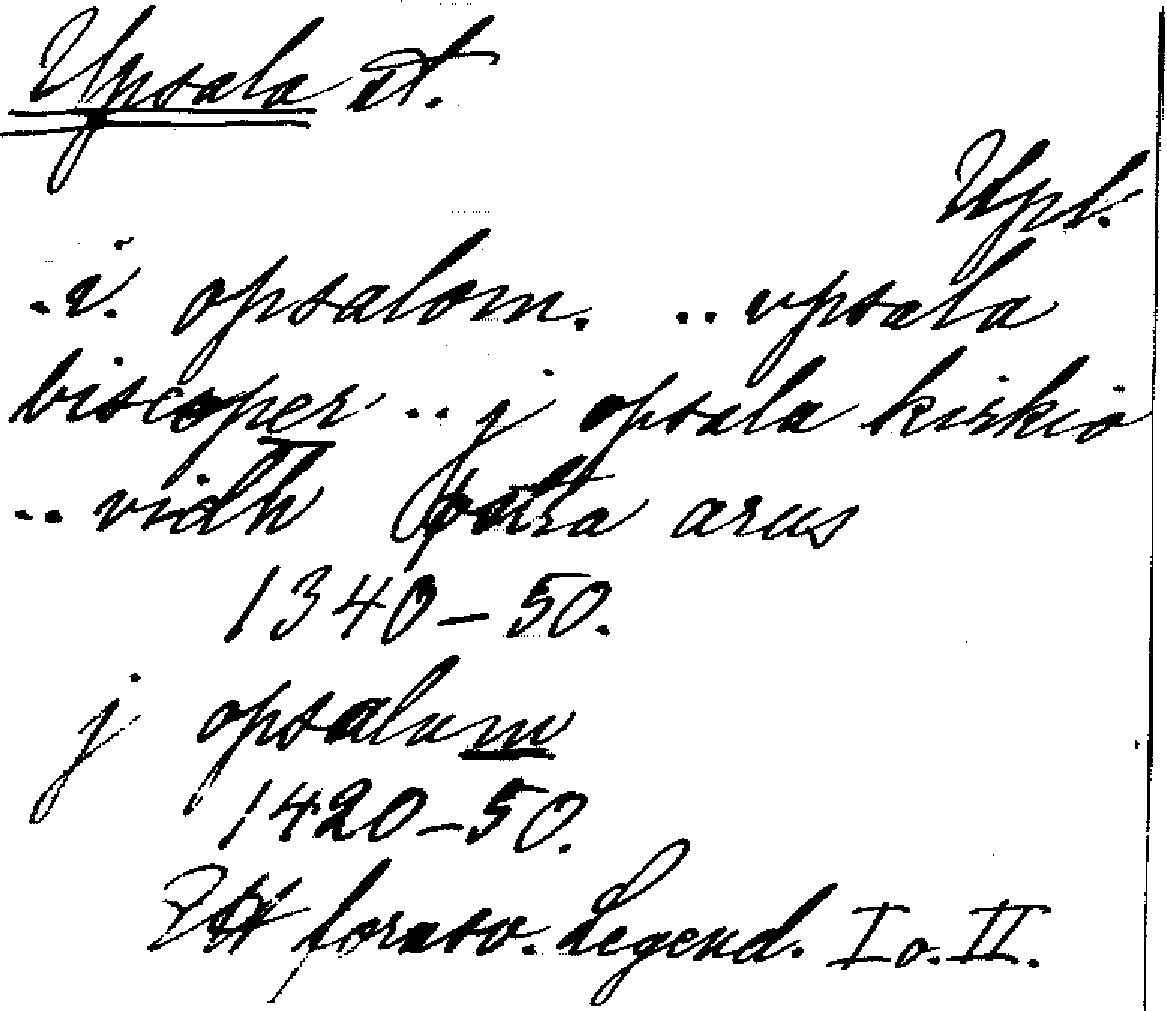 Upsala st.
Upl.
.i. opsalom. .. vpsala
biscoper .. j opsala kirkio
.. vidh østra arus
1340–50.
j opsalum
1420–50.
Ett fornsv. Legend. I o. II.